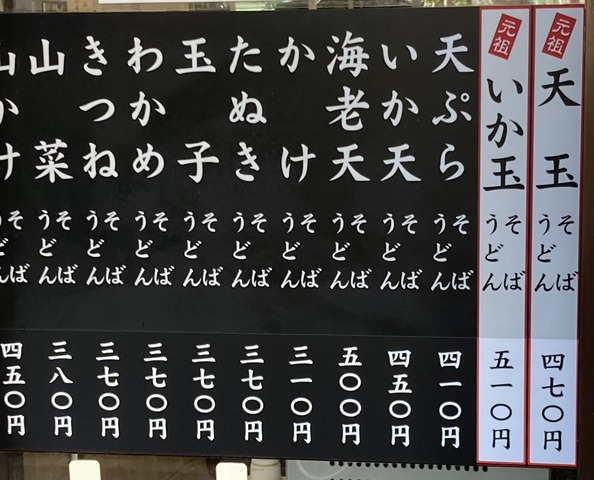 元祖 天玉 そば うどん 四七〇円
元祖 いか玉 そば うどん 五一〇円
天ぷら そば うどん 四一〇円
いか天 そば うどん 四五〇円
海老天 そば うどん 五〇〇円
かけ そば うどん 三一〇円
たぬき そば うどん 三七〇円
玉子 そば うどん 三七〇円
わかめ そば うどん 三七〇円
きつね そば うどん 三七〇円
山菜 そば うどん 三八〇円
山かけ そば うどん 四五〇円